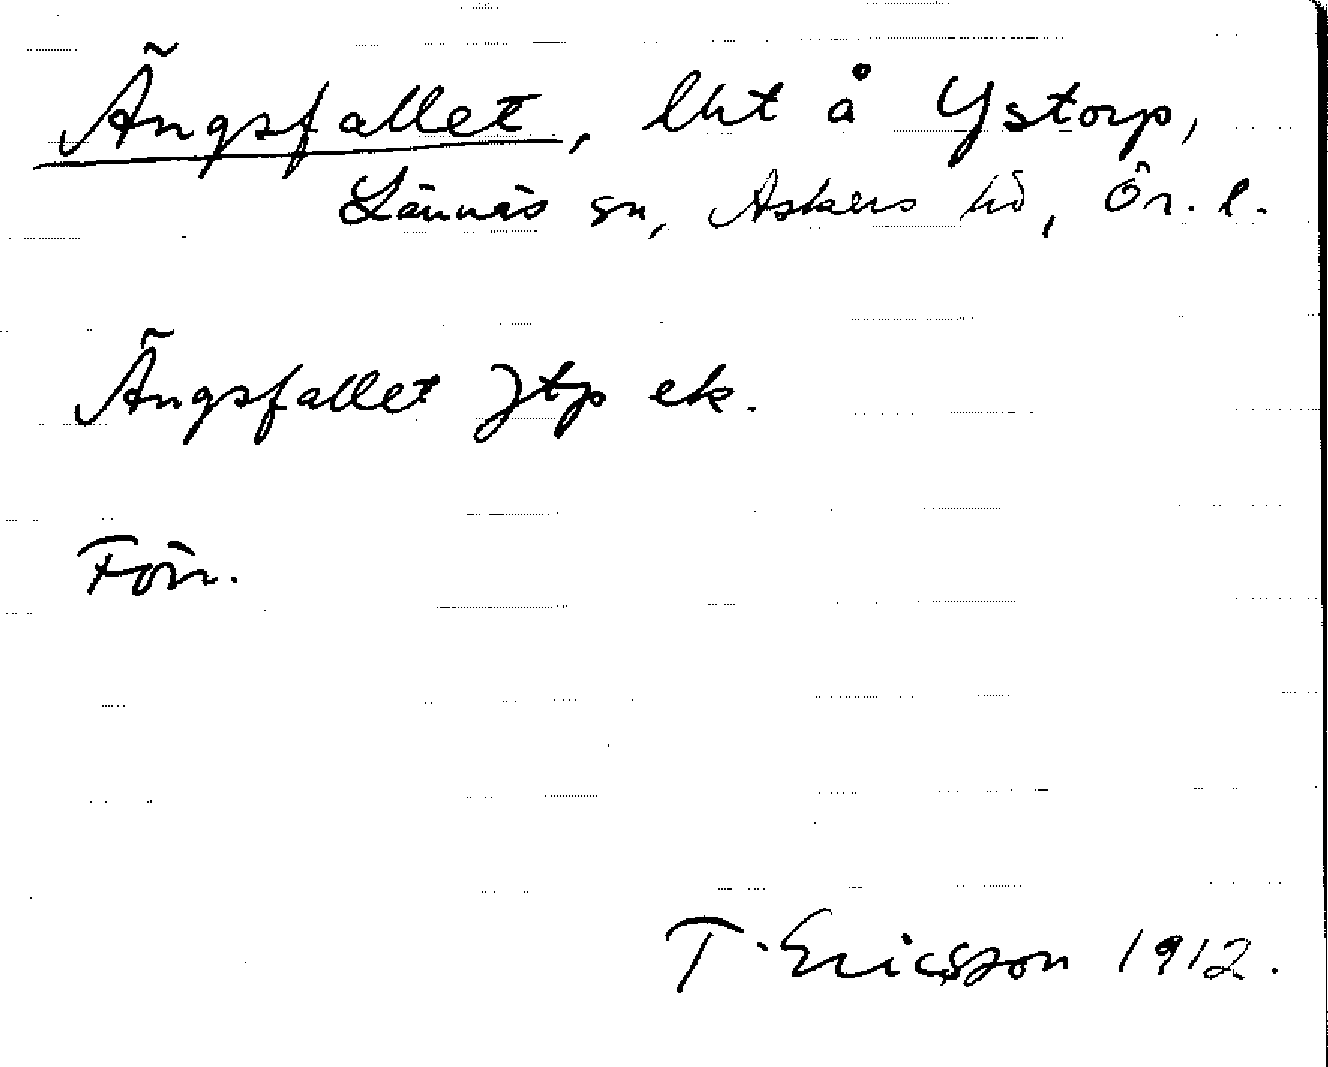 Ängsfallet, lht å Ystorp,
Lännäs sn, Askers hd, Ör. l.
Ängsfallet Jtp ek.
Förr.
T. Ericsson 1912.